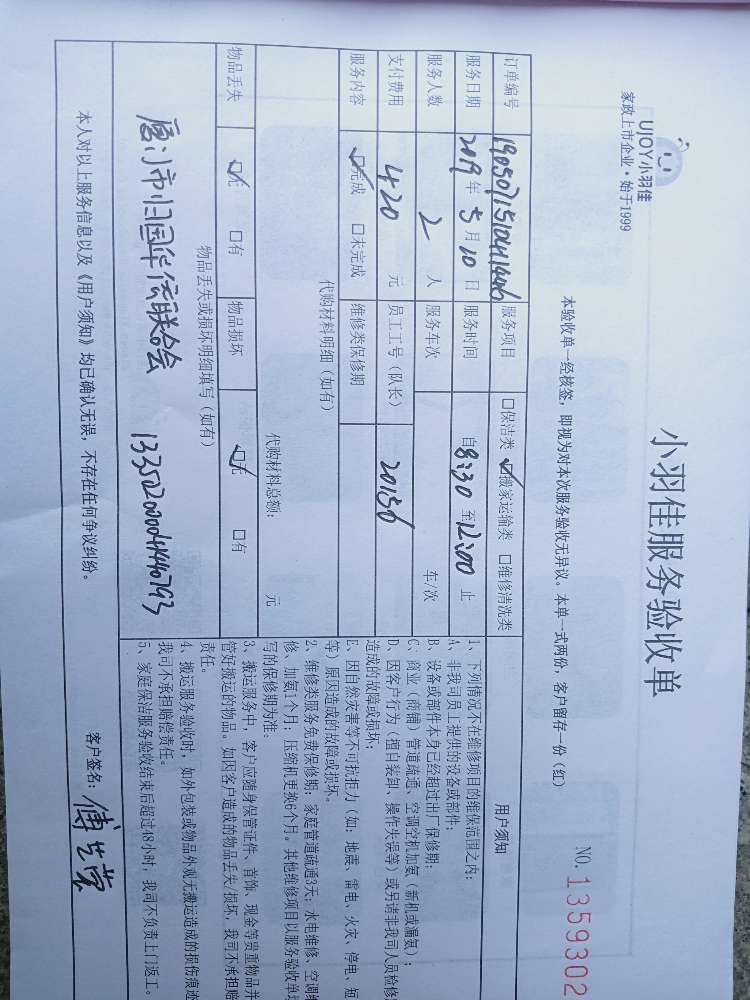 UJOY小羽佳
家政上市企业·始于1999
小羽佳服务验收单
NO. 1359302
本验收单一经核签，即视为对本次服务验收无异议。本单一式两份，客户留存一份（红）
订单编号 服务项目 □保洁类 ☑搬家运输类 □维修清洗类
服务日期 2019 年 5 月 10 日 服务时间 自 8:30 至 12:00 止
服务人数 2 人 服务车次 车/次
支付费用 420 元 员工工号（队长） 20156
服务内容 ☑完成 □未完成 维修类保修期
代购材料明细（如有）
代购材料总额： 元
物品丢失 ☑无 □有 物品损坏 ☑无 □有
物品丢失或损坏明细填写（如有）
厦门市归国华侨联合会
用户须知
1、下列情况不在维修项目的维保范围之内：
A、非我司员工提供的设备或部件；
B、设备或部件本身已经超过出厂保修期；
C、商业（商铺）管道疏通、空调空机加氨（新机或漏氨）；
D、因客户行为（擅自装卸、操作失误等）或另请非我司人员检修
造成的故障或损坏；
E、因自然灾害等不可抗拒力（如：地震、雷电、火灾、停电、短
等）原因造成的故障或损坏。
2、维修类服务免费保修期：家庭管道疏通3天；水电维修、空调
修、加氨1个月；压缩机更换6个月。其他维修项目以服务验收单
写的保修期为准。
3、搬运服务中，客户应随身保管证件、首饰、现金等贵重物品并
管好搬运的物品。如因客户造成的物品丢失/损坏，我司不承担
责任。
4、搬运服务验收时，如外包装或物品外观无搬运造成的损伤痕迹
我司不承担赔偿责任。
5、家庭保洁服务验收结束后超过48小时，我司不负责上门返工。
本人对以上服务信息以及《用户须知》均已确认无误，不存在任何争议纠纷。
客户签名：